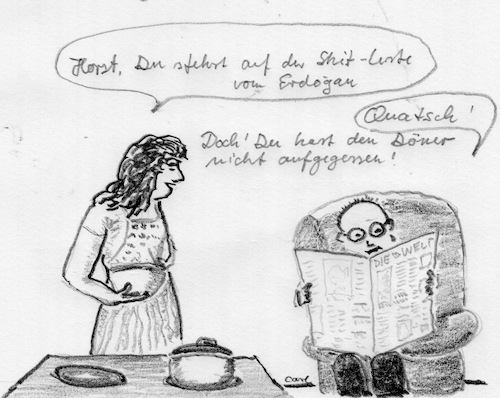 Horst, Du stehst auf der Shit-Liste
vom Erdoğan
Quatsch!
Doch! Du hast den Döner
nicht aufgegessen!
DIE WELT
Carl